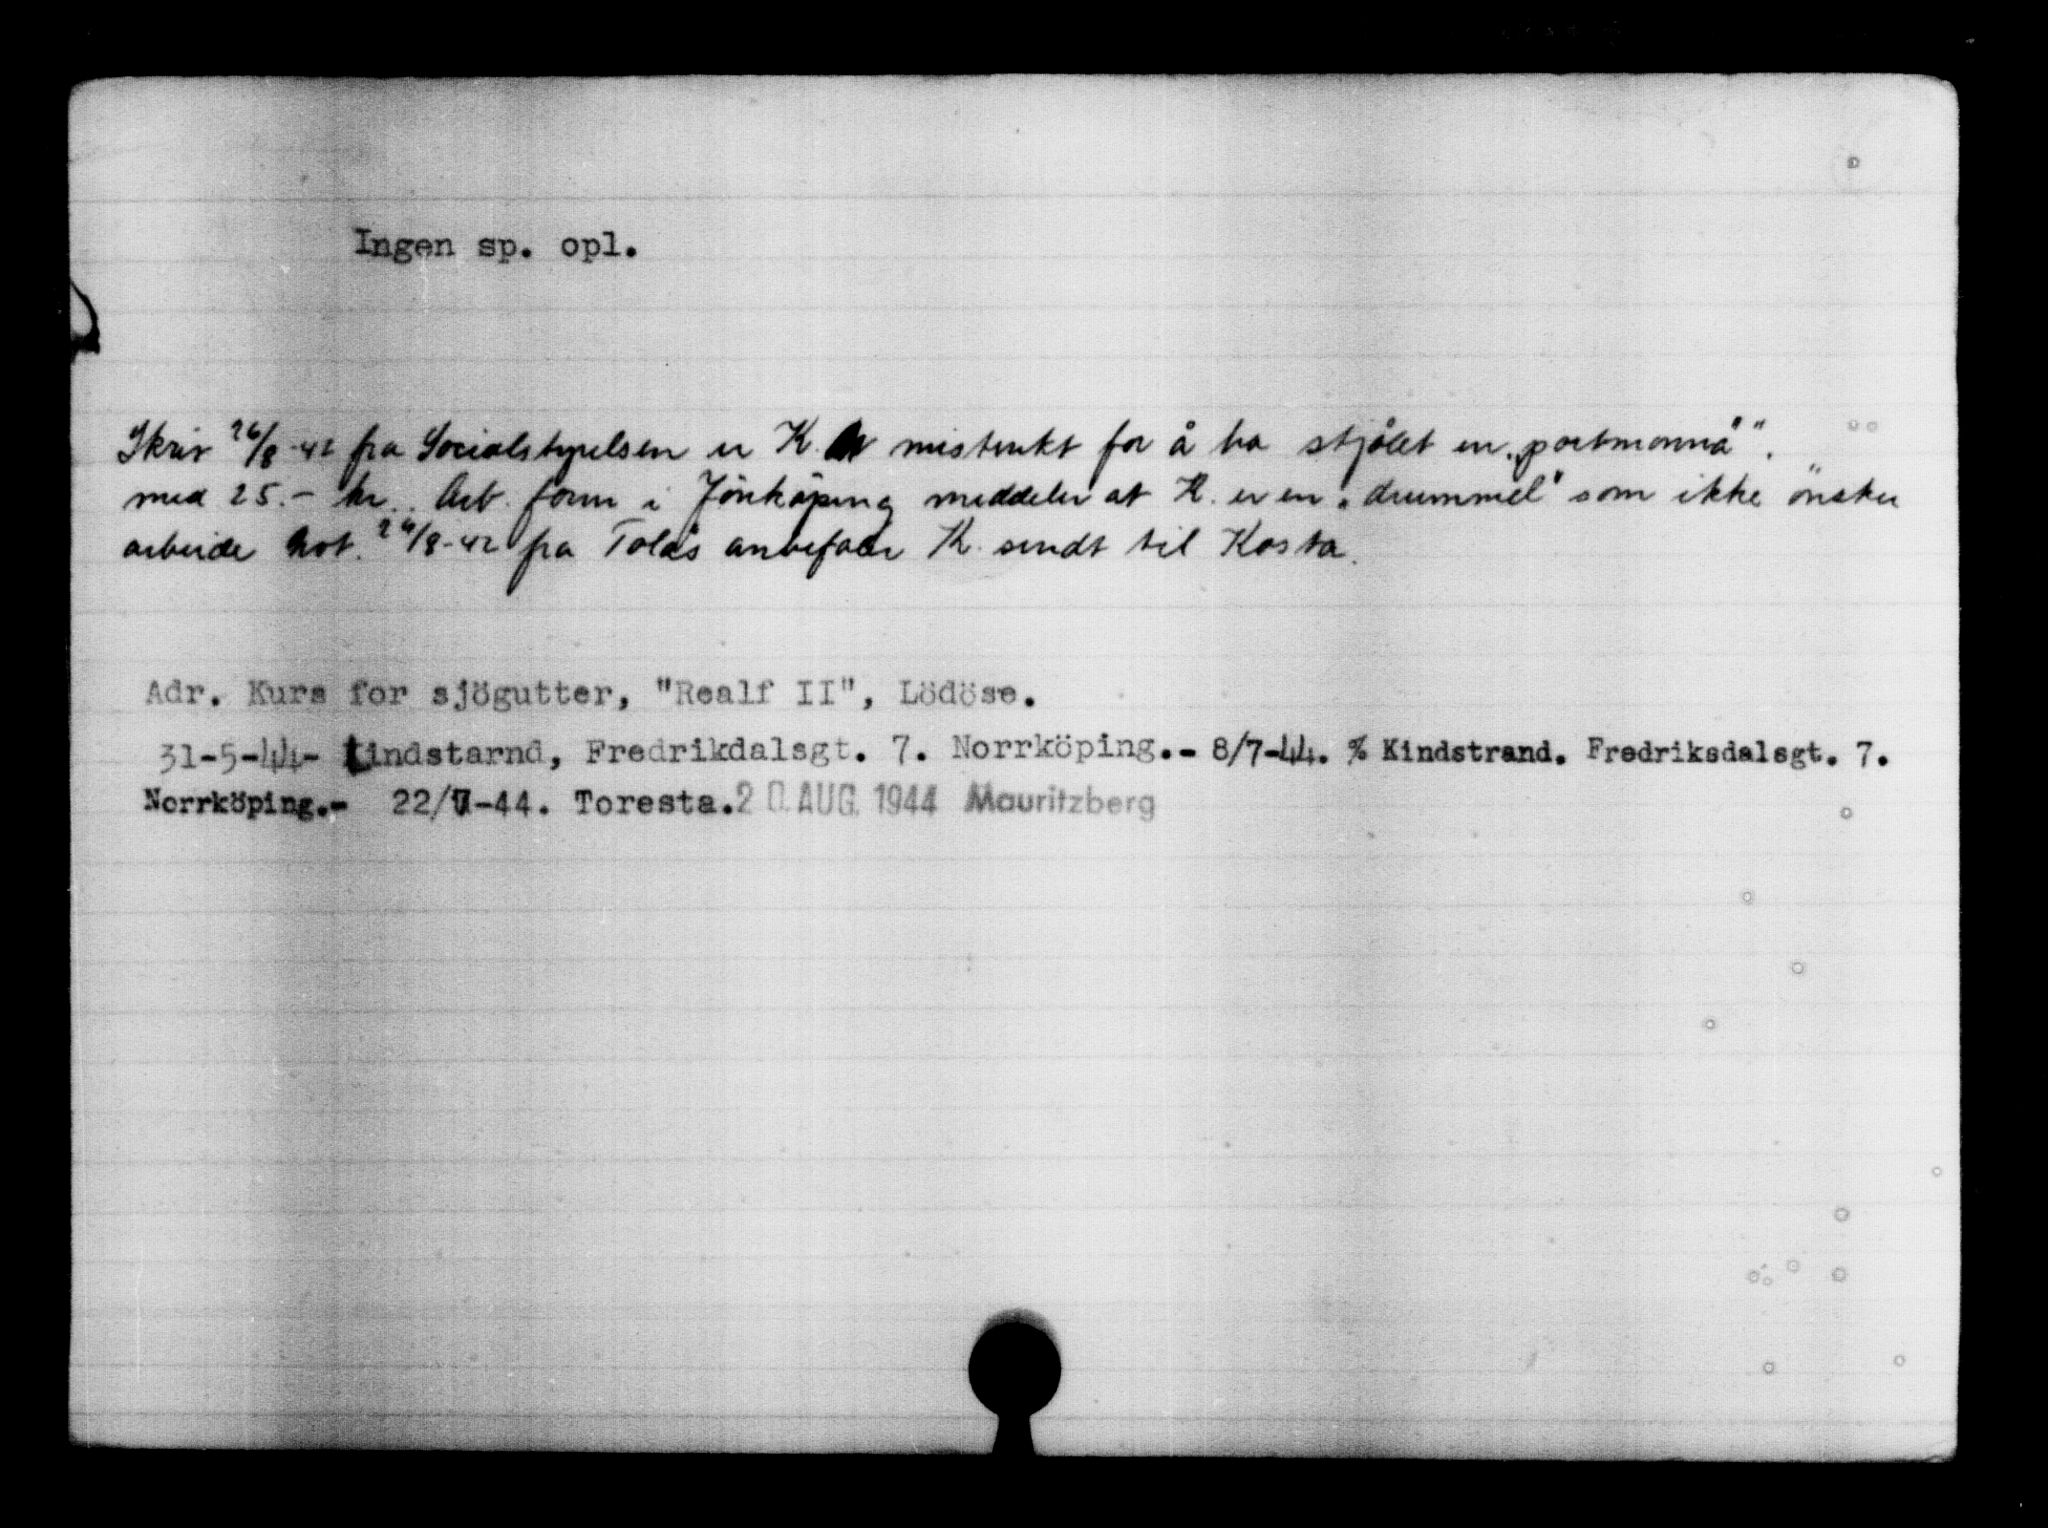 Ingen sp. opl.
Skriv 26/8-42 fra Socialstyrelsen er K. mistenkt for å ha stjålet en „portmonnä".
med 25.- kr.. Arb. form i Jönköping meddeler at K. er en „drummel" som ikke önsker
arbeide Not. 26/8-42 fra Tolås anbefaler K. sendt til Kosta.
Adr. Kurs for sjögutter, "Realf II", Lödöse.
31-5-44- Kindstarnd, Fredrikdalsgt. 7. Norrköping.- 8/7-44. % Kindstrand. Fredriksdalsgt. 7.
Norrköping.- 22/7-44. Toresta. 20 AUG. 1944 Mauritzberg